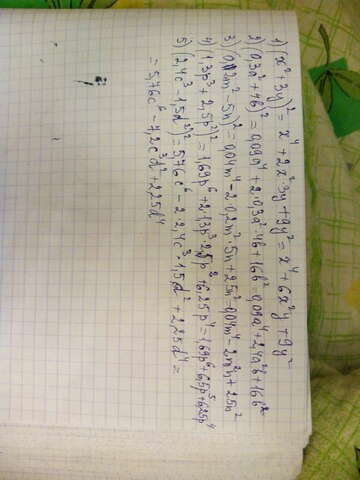 1) (x² + 3y)² = x⁴ + 2x²·3y + 9y² = x⁴ + 6x²y + 9y²
2) (0,3a² + 4b)² = 0,09a⁴ + 2·0,3a²·4b + 16b² = 0,09a⁴ + 2,4a²b + 16b²
3) (0,2m² - 5n)² = 0,04m⁴ - 2·0,2m²·5n + 25n² = 0,04m⁴ - 2m²n + 25n²
4) (1,3p³ + 2,5p²)² = 1,69p⁶ + 2·1,3p³·2,5p² + 6,25p⁴ = 1,69p⁶ + 6,5p⁵ + 6,25p⁴
5) (2,4c³ - 1,5d²)² = 5,76c⁶ - 2·2,4c³·1,5d² + 2,25d⁴ =
= 5,76c⁶ - 7,2c³d² + 2,25d⁴